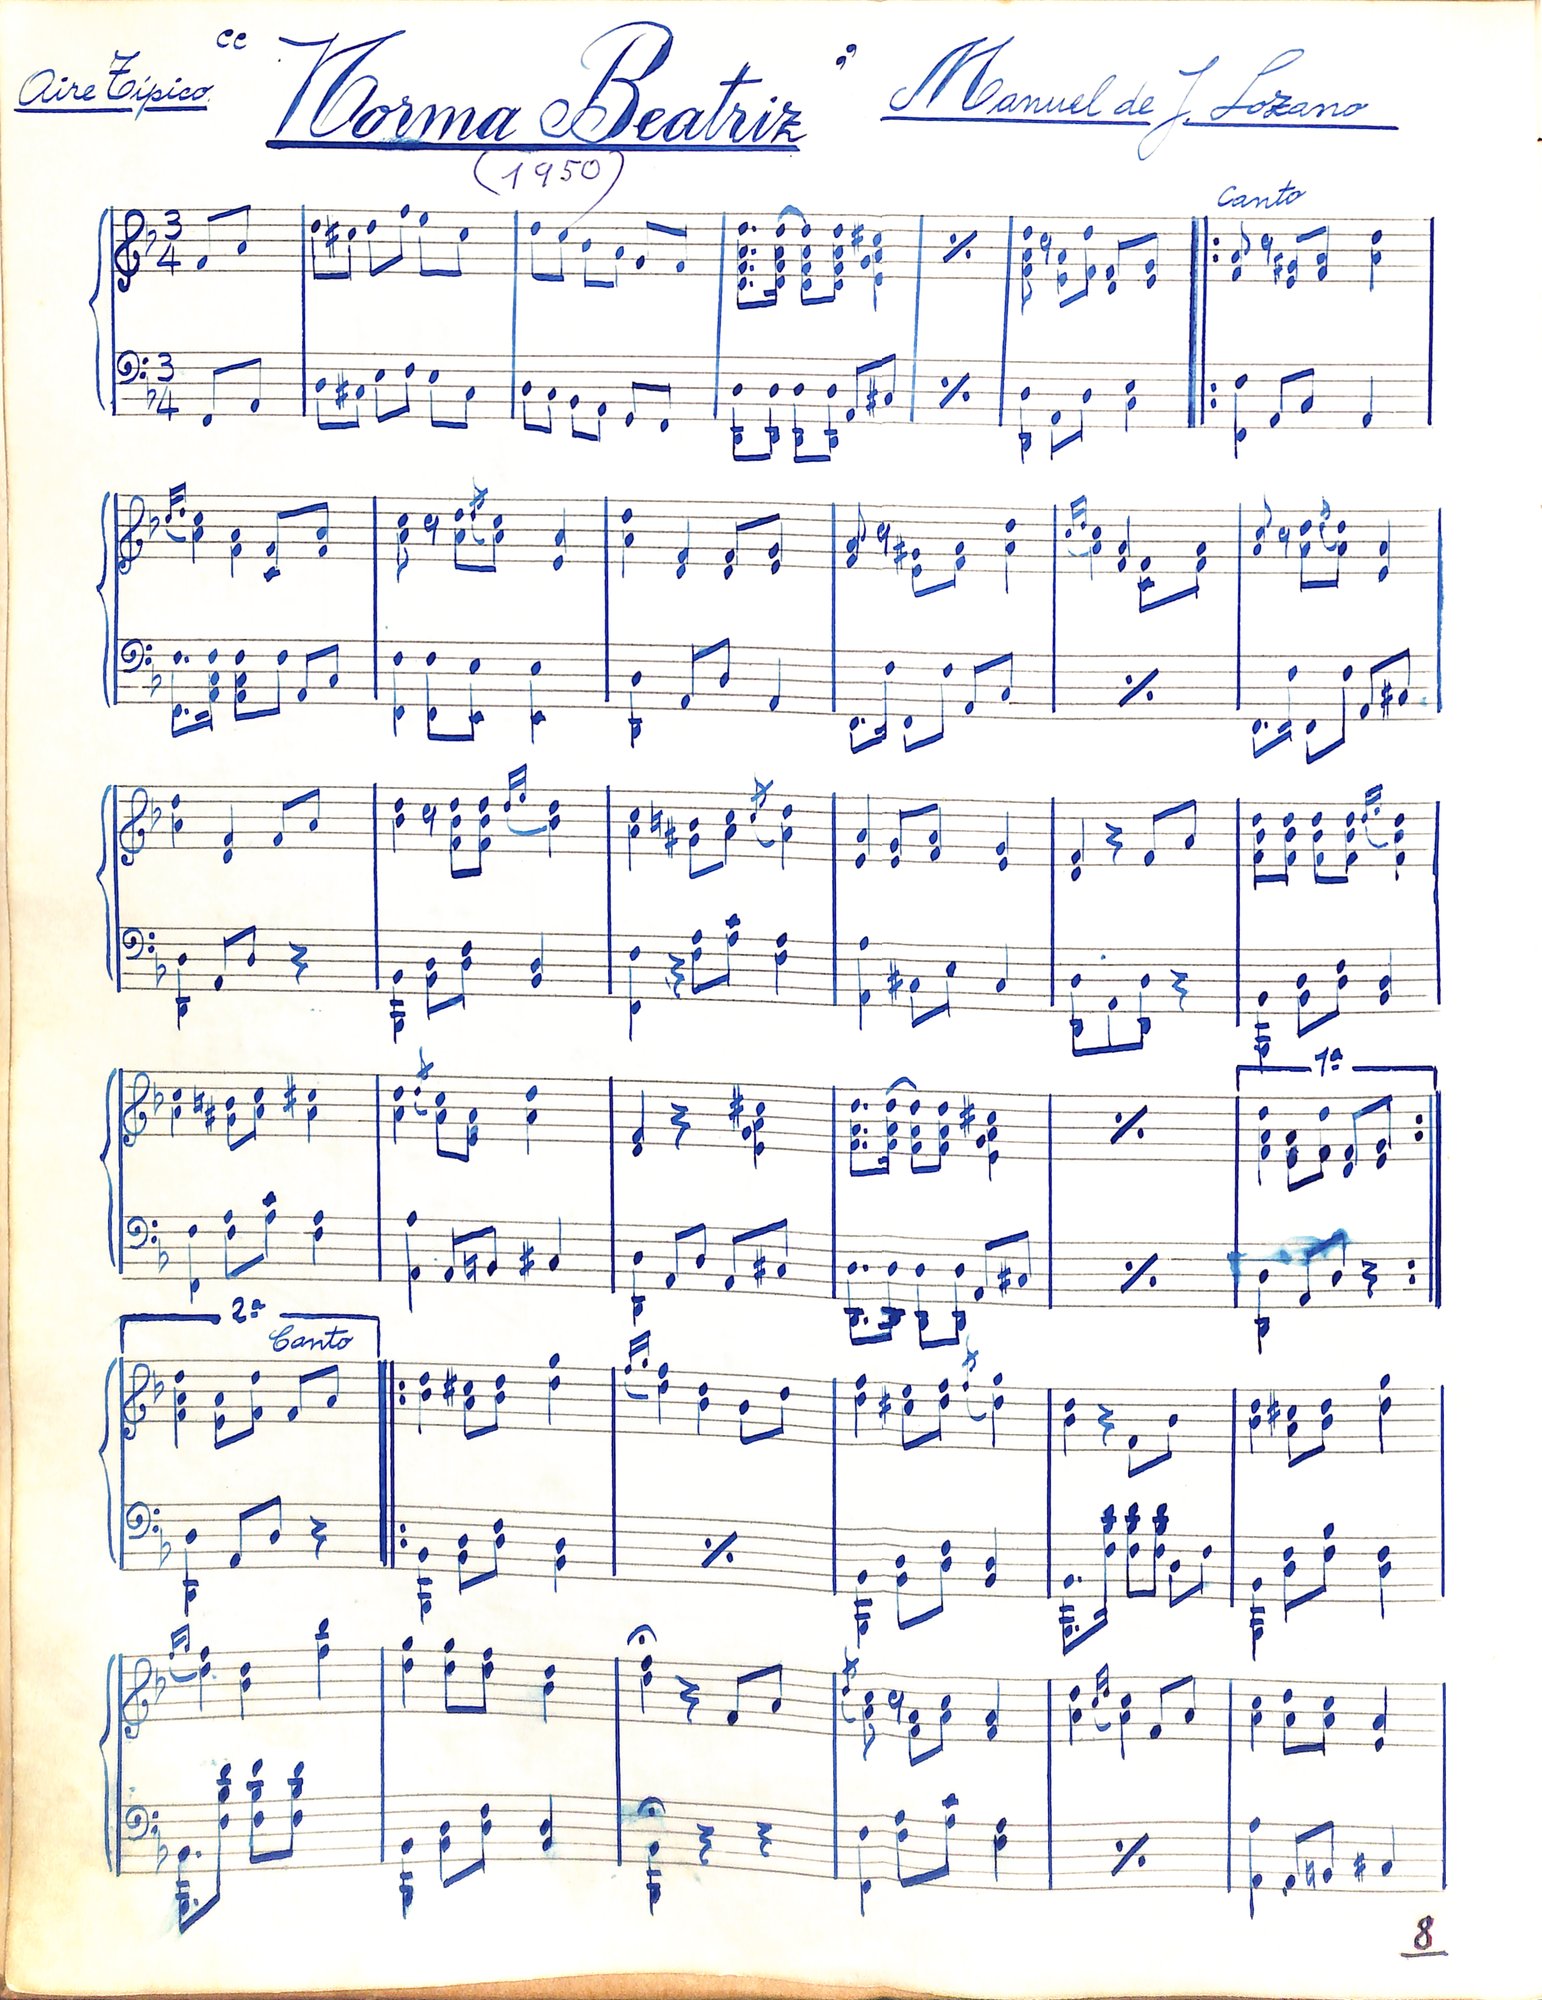 Aire Típico. "Norma Beatriz" Manuel de J. Lozano
(1950)
Canto
3
4
3
4
1ª
2ª
Canto
8